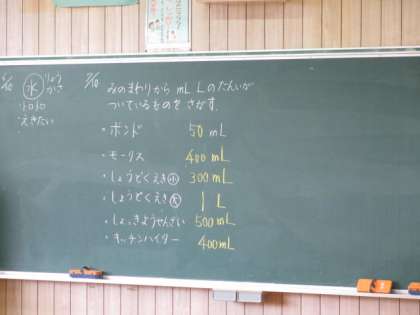 5/10
水
りょう
かさ
トロトロ
えきたい
7/10
みのまわりから mL Lのたんいが
ついているものをさがす。
・ボンド 50 mL
・モークス 400 mL
・しょうどくえき小 300 mL
・しょうどくえき大 1 L
・しょっきようせんざい 500 mL
・キッチンハイター 400 mL